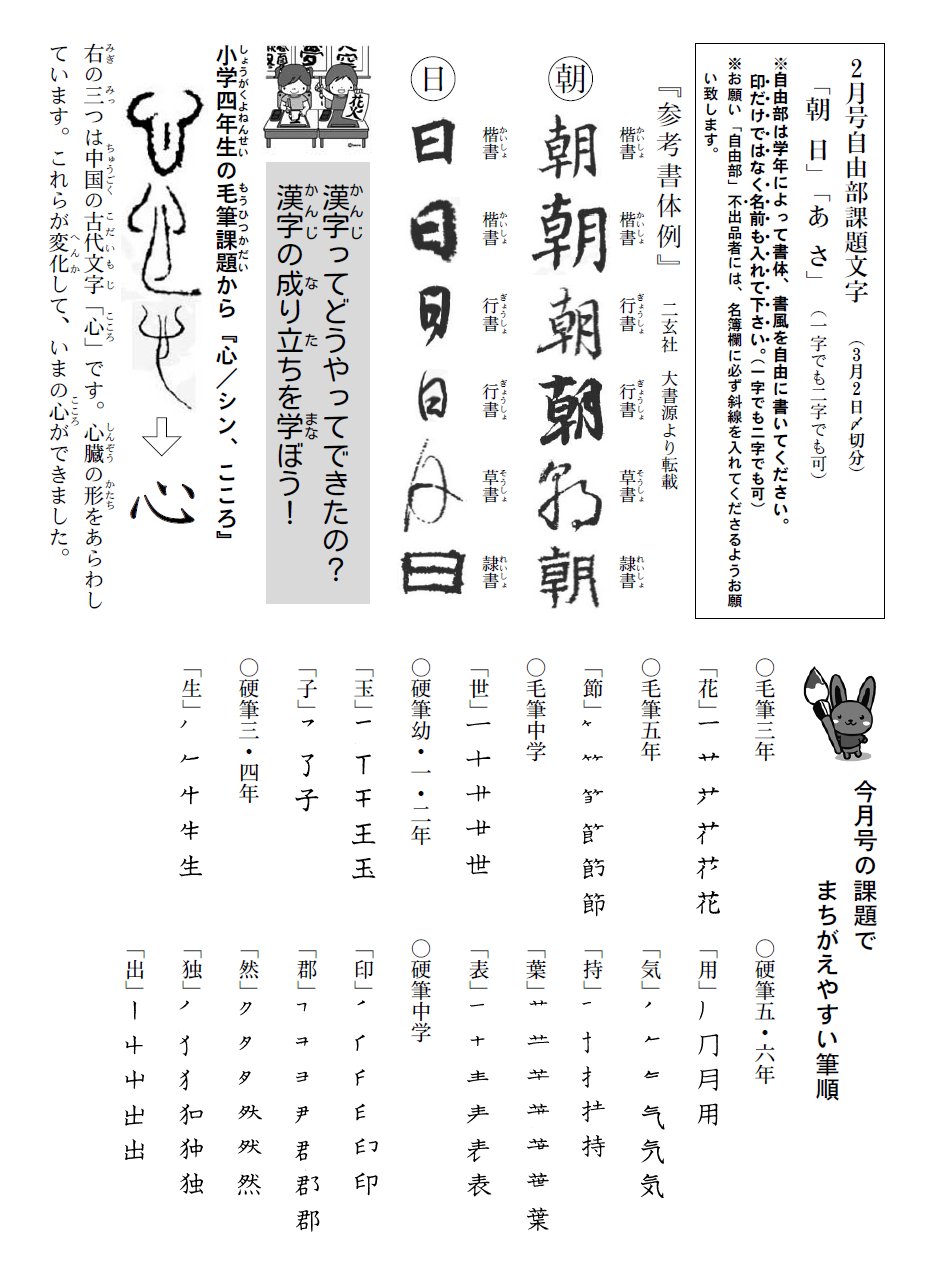 2月号自由部課題文字 (3月2日〆切分)
「朝 日」「あ さ」 (一字でも二字でも可)
※自由部は学年によって書体、書風を自由に書いてください。
印だけではなく名前も入れて下さい。(一字でも二字でも可)
※お願い「自由部」不出品者には、名簿欄に必ず斜線を入れてくださるようお願
い致します。
『参考書体例』 二玄社 大書源より転載
朝
楷書 楷書 行書 行書 草書 隷書
朝 朝 朝 朝 朝 朝
日
楷書 楷書 行書 行書 草書 隷書
日 日 日 日 日 日
花火
漢字ってどうやってできたの?
漢字の成り立ちを学ぼう!
小学四年生の毛筆課題から『心/シン、こころ』
心
右の三つは中国の古代文字「心」です。心臓の形をあらわし
ています。これらが変化して、いまの心ができました。
今月号の課題で
まちがえやすい筆順
○毛筆三年
「花」
花
○毛筆五年
「節」
節
○毛筆中学
「世」
世
○硬筆幼・一・二年
「玉」
玉
「子」
子
○硬筆三・四年
「生」
生
○硬筆五・六年
「用」
用
「気」
気
「持」
持
「葉」
葉
「表」
表
○硬筆中学
「印」
印
「郡」
郡
「然」
然
「独」
独
「出」
出